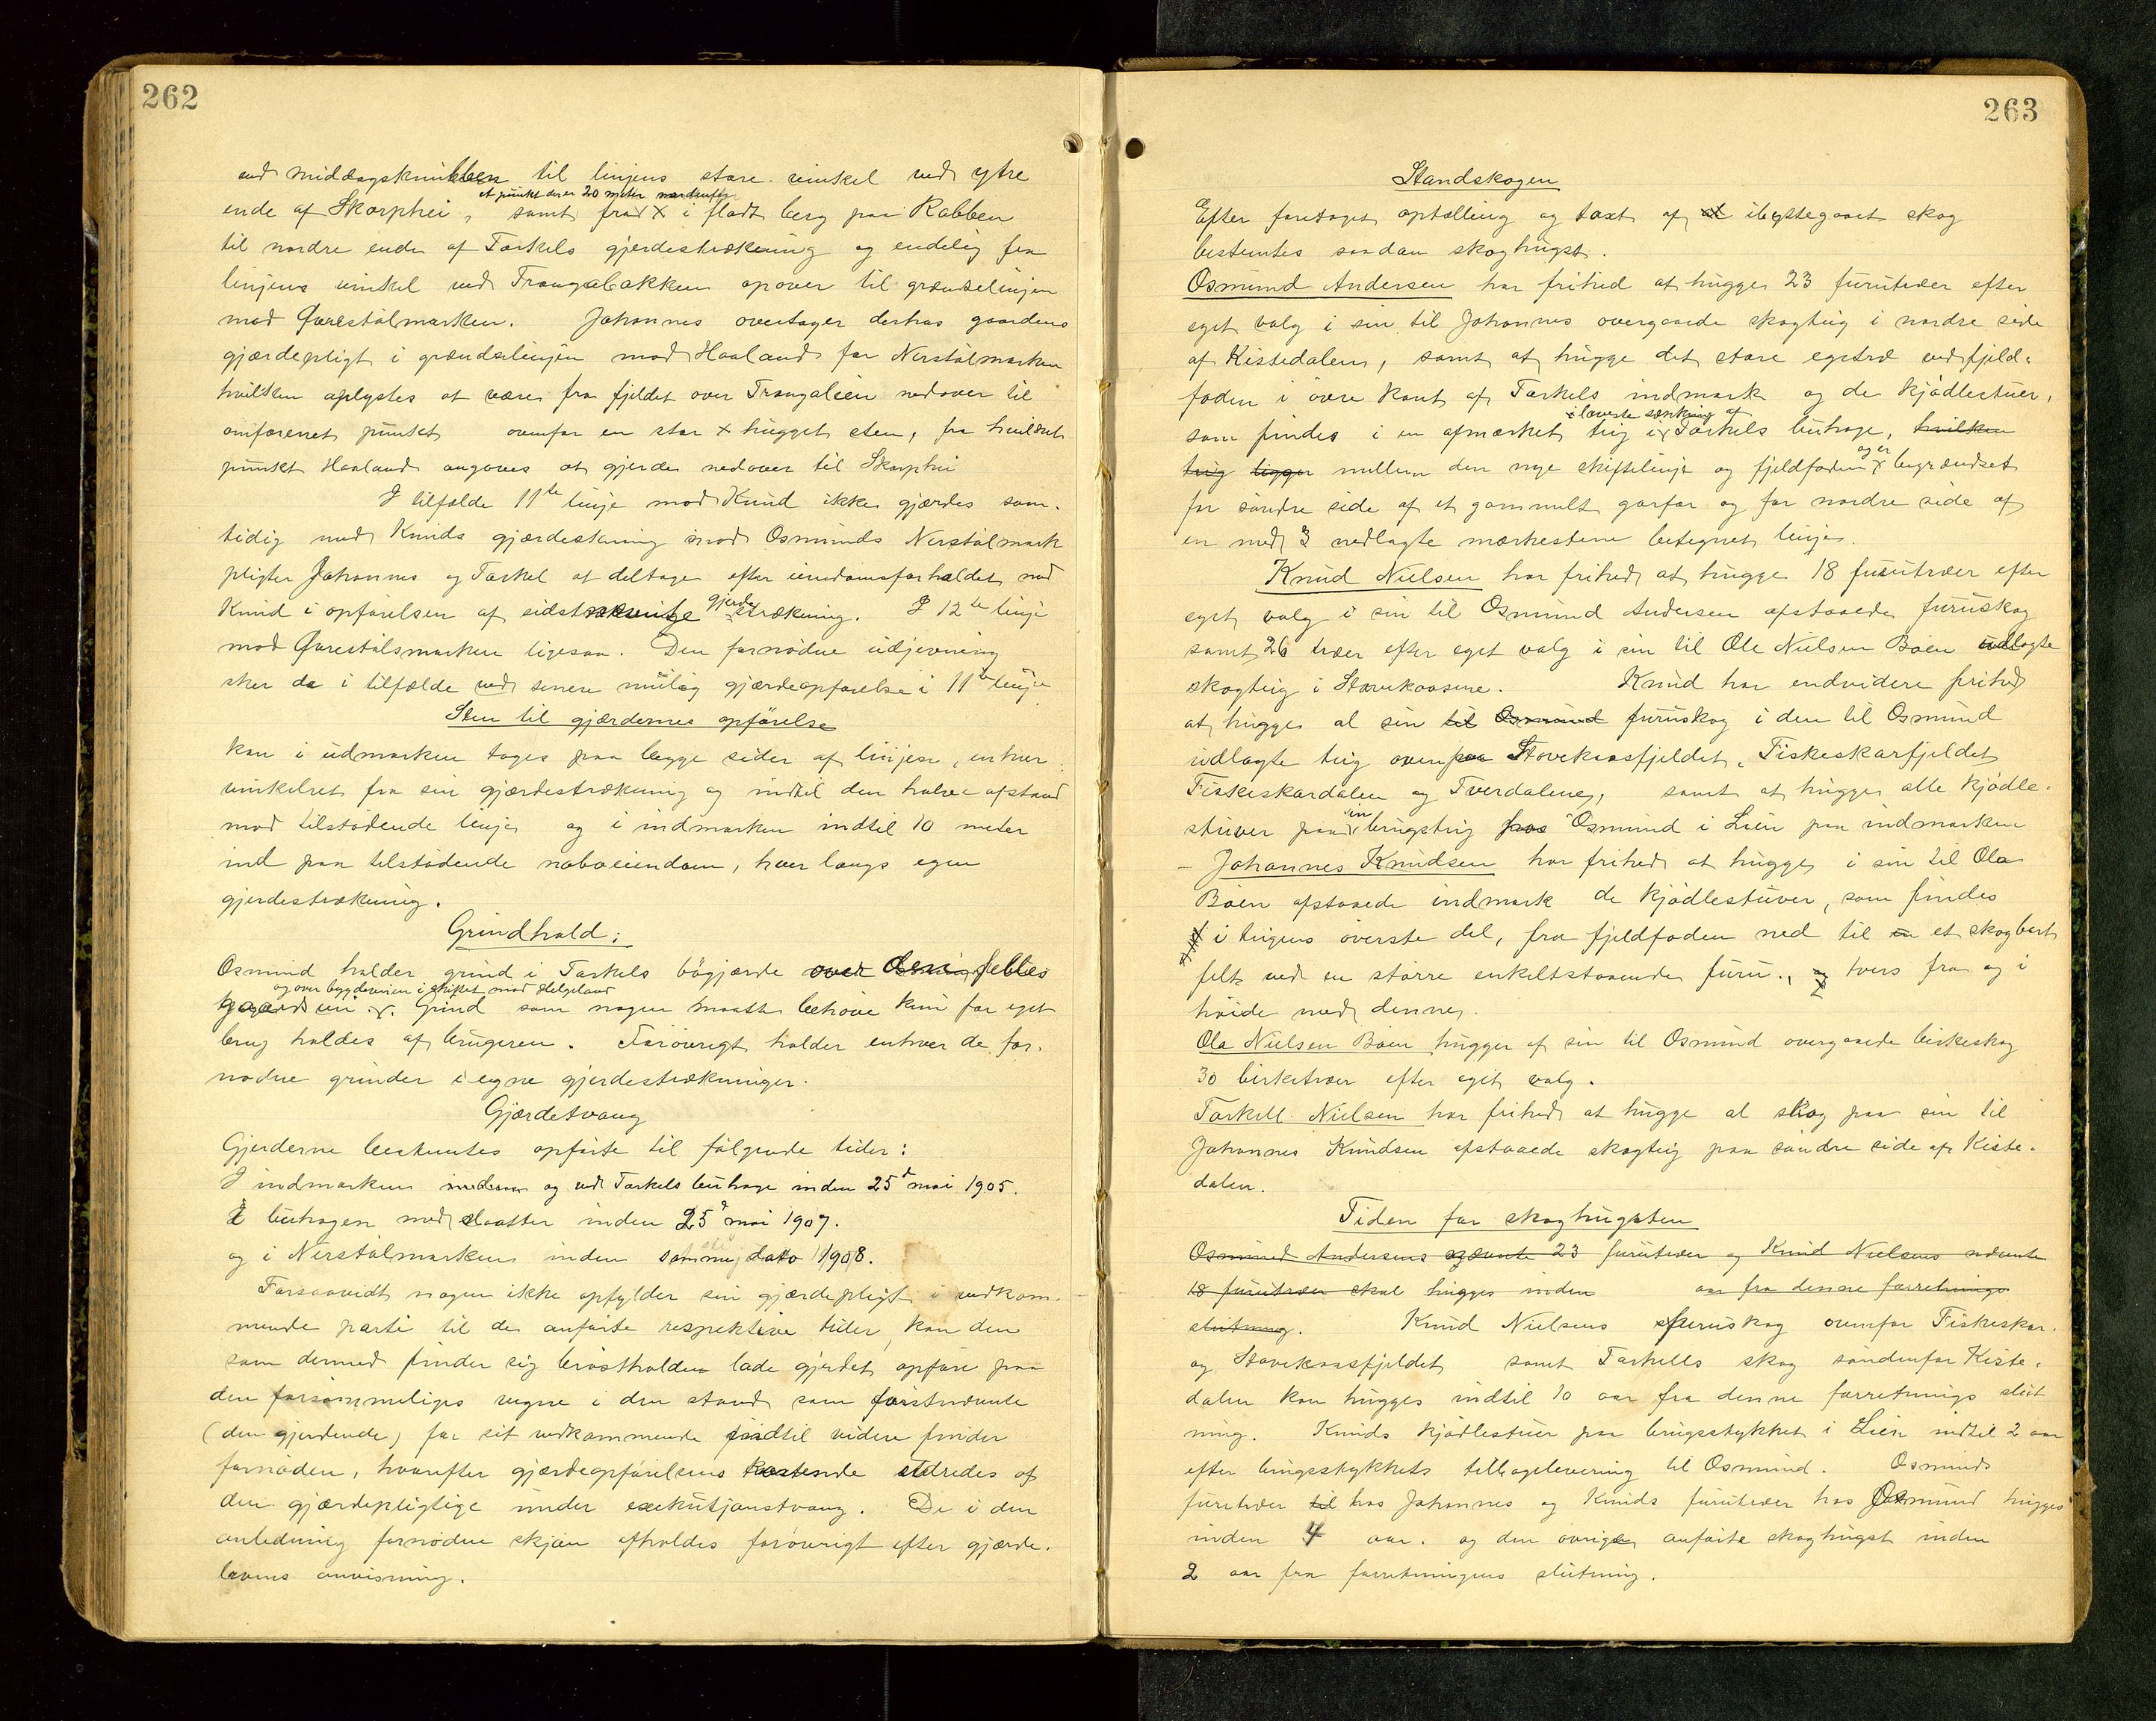 262
ved middagsknubben til linjens store vinkel ved ytre
ende af Skorphei, samt fra et punkt der er 20 meter nordenfor x i fladt berg paa Rabben
til nordre ende af Torkels gjerdestrækning og endelig fra
linjens vinkel ved Trangabakken opover til grændselinjen
mod Øvrestølmarken. Johannes overtager derhos gaardens
gjærdepligt i grændselinjen mod Haaland for Nerstølmarken
hvilken oplystes at være fra fjeldet over Trangaleien nedover til
omforenet punkt ovenfor en stor x hugget sten, fra hvilket
punkt Haaland angaves at gjerde nedover til Skorphei
I tilfælde 11te linje mod Knud ikke gjærdes sam-
tidig med Knuds gjærdestæning mod Osmunds Nerstølmark
pligter Johannes og Torkel at deltage efter eiendomsforholdet med
Knud i opførelsen af sidstnævnte gjerdestrækning. I 12te linje
mod Øvrestølsmarken ligesaa. Den fornødne udjevning
sker da i tilfælde ved senere mulig gjærdeopførelse i 11te linje
Sten til gjærdernes opførelse
kan i udmarken tages paa begge sider af linjen, enhver
vinkelret fra sin gjærdestrækning og indtil den halve afstand
mod tilstødende linje og i indmarken indtil 10 meter
ind paa tilstødende naboeiendom, hver langs egen
gjerdestrækning.
Grindhold:
Osmund holder grind i Torkels bøgjærde over den fælles
gaardsvei og over bygdeveien i skiftet mod Helgeland. Grind som nogen maatte behøve kun for eget
brug holdes af brugeren. Forøvrigt holder enhver de for-
nødne grinder i egne gjerdestrækninger.
Gjærdetvang
Gjerderne bestemtes opførte til følgende tider:
I indmarken og ved Torkels buhage inden 25d mai 1905.
I buhagen med slaatter inden 25d mai 1907.
og i Nerstølmarken inden samme dato 1908.
Forsaavidt nogen ikke opfylder sin gjærdepligt i vedkom-
mende parti til de anførte respektive tider, kan den
som dermed finder sig brøstholden lade gjerdet opføre paa
den forsømmeliges vegne i den stand som førstnævnte
(den gjerdende) for sit vedkommende indtil videre finder
fornøden, hvorefter gjærdeopførelsens kostende udredes af
den gjærdepligtige under exekutjonstvang. De i den
anledning fornødne skjøn afholdes forøvrigt efter gjærde-
lovens anvisning.
263
Standskogen
Efter foretaget optælling og taxt af ibyttegaaet skog
bestemtes saadan skoghugst.
Osmund Andersen har frihed at hugge 23 furutræer efter
eget valg i sin til Johannes overgaaede skogteig i nordre side
af Kistedalen, samt at hugge det store egetræ ved fjeld-
foden i øvre kant af Torkels indmark og de kjødlestuer,
som findes i en afmærket teig i laveste sænkning af Torkels buhage, hvilken
teig ligger mellem den nye skiftelinje og fjeldfoden og er begrændset
for søndre side af et gammelt garfar og for nordre side af
en med 3 nedlagte mærkestene betegnet linje.
Knud Nielsen har frihed at hugge 18 furutræer efter
eget valg i sin til Osmund Andersen afstaaede furuskog
samt 26 træer efter eget valg i sin til Ole Nielsen Bøen udlagte
skogteig i Stovekaasene. Knud har endvidere frihed
at hugge al sin til Osmund furuskog i den til Osmund
udlagte teig ovenpaa Stovekaasfjeldet, Fiskeskarfjeldet
Fiskeskardalen og Tverdalene, samt at hugge alle kjødle-
stuver paa sin brugsteig hos Osmund i Lien paa indmarken
- Johannes Knudsen har frihed at hugge i sin til Ola
Bøen afstaaede indmark de kjødlestuver, som findes
i teigens øverste del, fra fjeldfoden ned til en et skogbart
felt ved en større enkeltstaaende furu., og tvers fra og i
høide med denne.
Ola Nielsen Bøen hugger af sin til Osmund overgaaede birkeskog
30 birketræer efter eget valg.
Torkell Nielsen har frihed at hugge al skog paa sin til
Johannes Knudsen afstaaede skogteig paa søndre side af Kiste-
dalen.
Tiden for skoghugsten
Osmund Andersens nævnte 23 furutræer og Knud Nielsens nævnte
18 furutræer skal hugges inden aar fra denne forretnings
slutning. Knud Nielsens furuskog ovenfor Fiskeskar-
og Stovekaasfjeldet samt Torkells skog søndenfor Kiste-
dalen kan hugges indtil 10 aar fra denne forretnings slut
ning. Knuds kjødlestuer paa brugsstykket i Lien indtil 2 aar
efter brugsstykkets tilbagelevering til Osmund. Osmunds
furetræer til hos Johannes og Knuds furutræer hos Osmund hugges
inden 4 aar. og den øvrige anførte skoghugst inden
2 aar fra forretningens slutning.